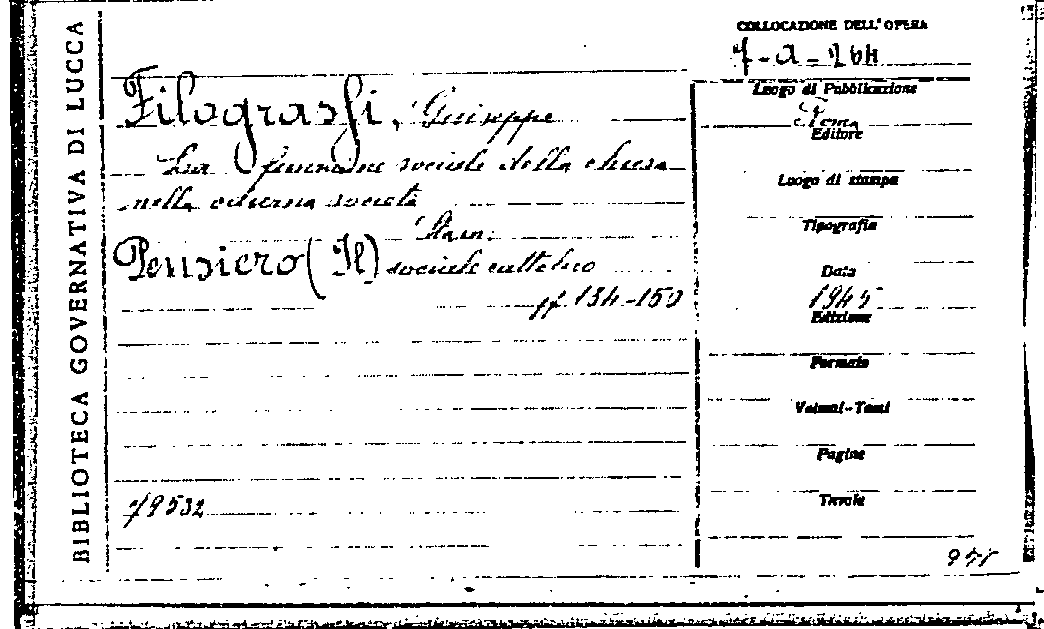 BIBLIOTECA GOVERNATIVA DI LUCCA
COLLOCAZIONE DELL'OPERA
7-a-264
Filograssi, Giuseppe
La funzione sociale della chiesa
nella odierna società
Pensiero (Il) sociale cattolico
pp. 134-150
79532
Luogo di Pubblicazione
Roma
Editore
Luogo di stampa
Tipografia
Data
1945
Edizione
Formato
Volumi-Tomi
Pagine
Tavole